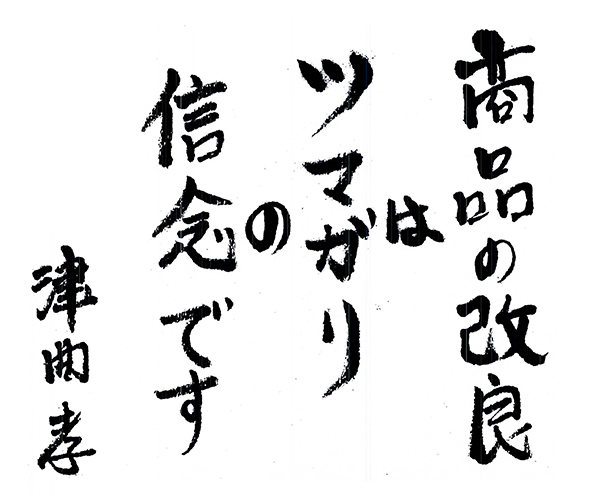 商品の改良
は
ツマガリ
の
信念です
津曲孝